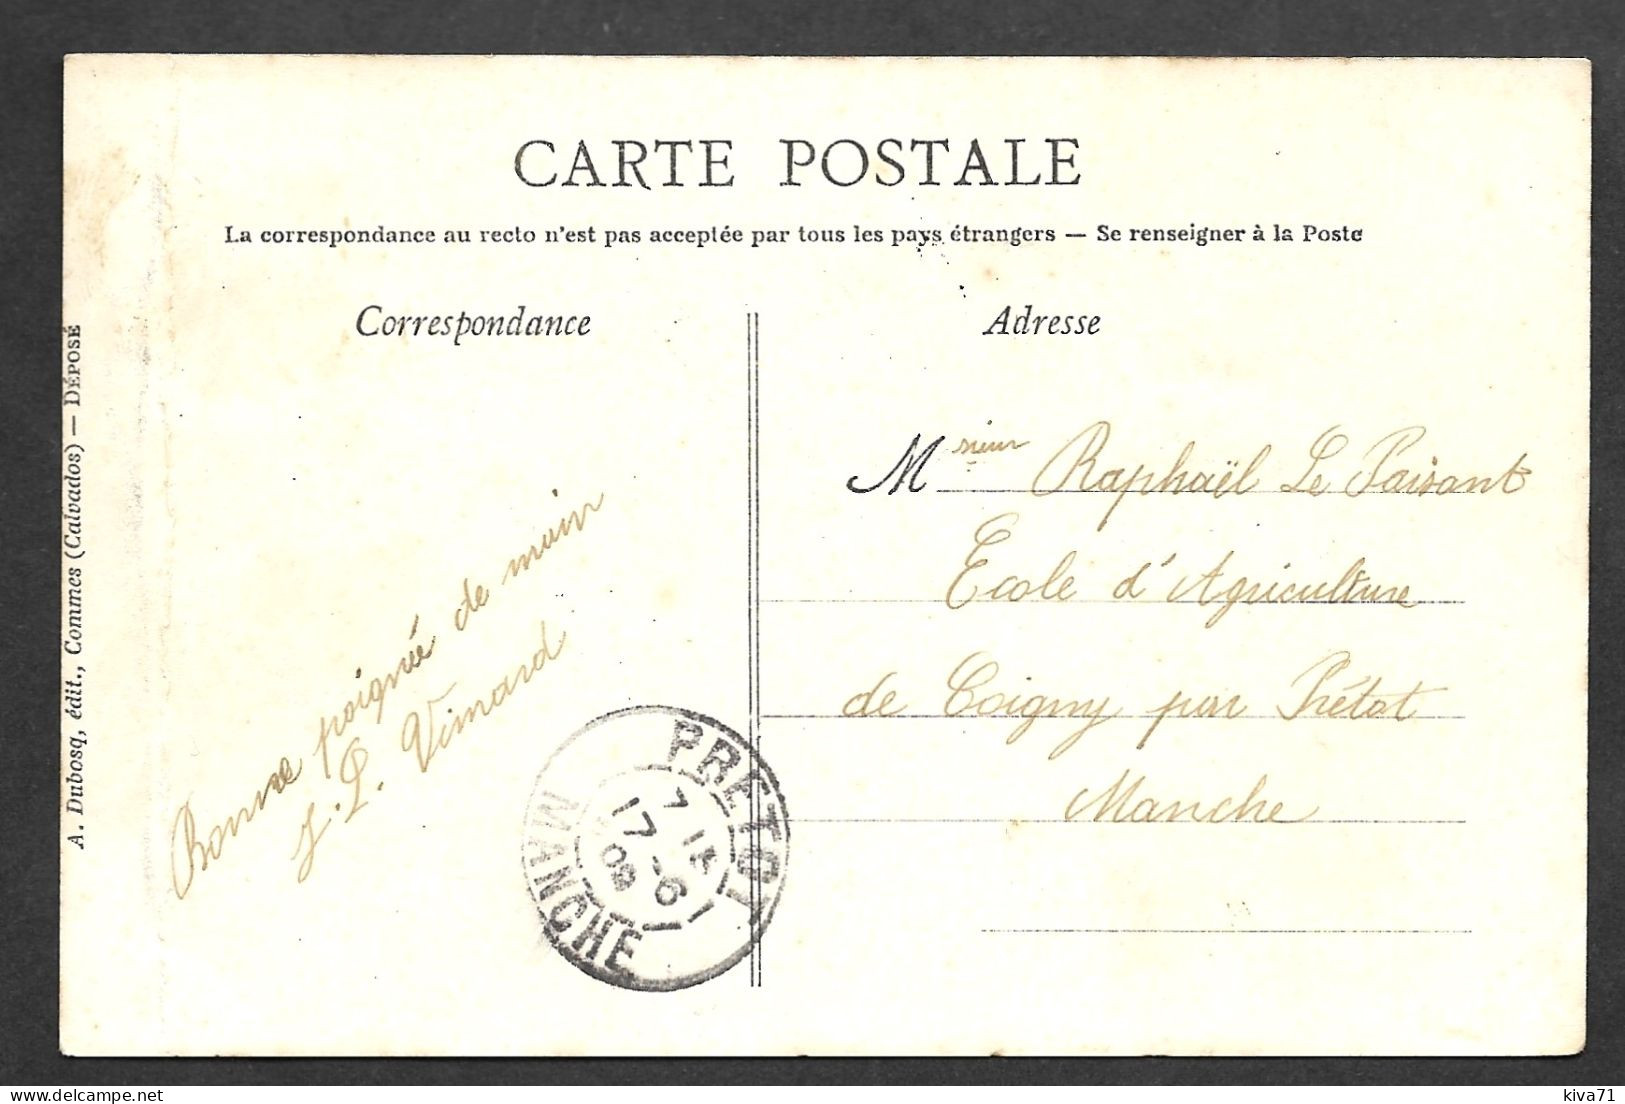 CARTE POSTALE
La correspondance au recto n'est pas acceptée par tous les pays étrangers — Se renseigner à la Poste
Correspondance
Adresse
A. Dubosq, édit., Commes (Calvados) — DÉPOSÉ
Bonne poignée de main
J. L. Vimard
Msieur Raphaël Le Paisant
Ecole d'Agriculture
de Coigny par Prétot
Manche
PRETOT
17 -6
08
MANCHE
delcampe.net
kiva71